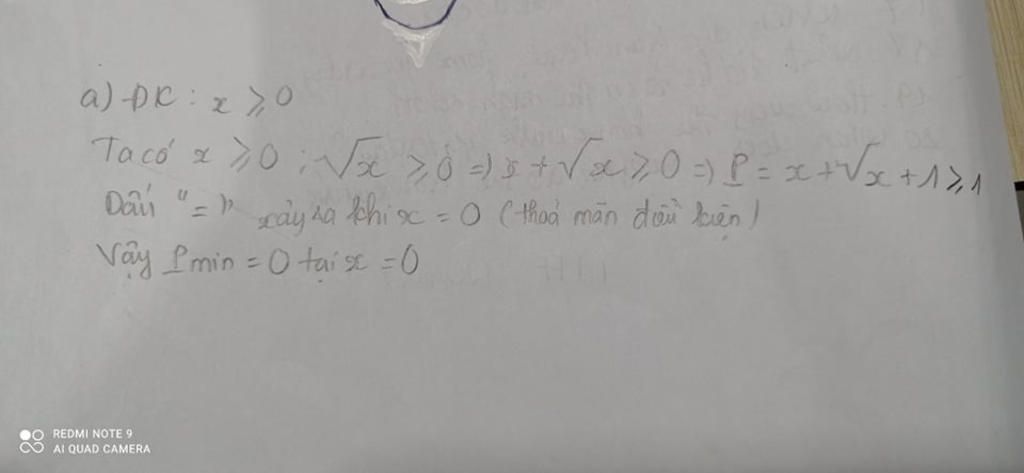 a) ĐK : x ≥ 0
Ta có x ≥ 0 ; √x ≥ 0 => x + √x ≥ 0 => P = x + √x + 1 ≥ 1
Dấu "=" xảy ra khi x = 0 (thoả mãn điều kiện)
Vậy Pmin = 0 tại x = 0
REDMI NOTE 9
AI QUAD CAMERA